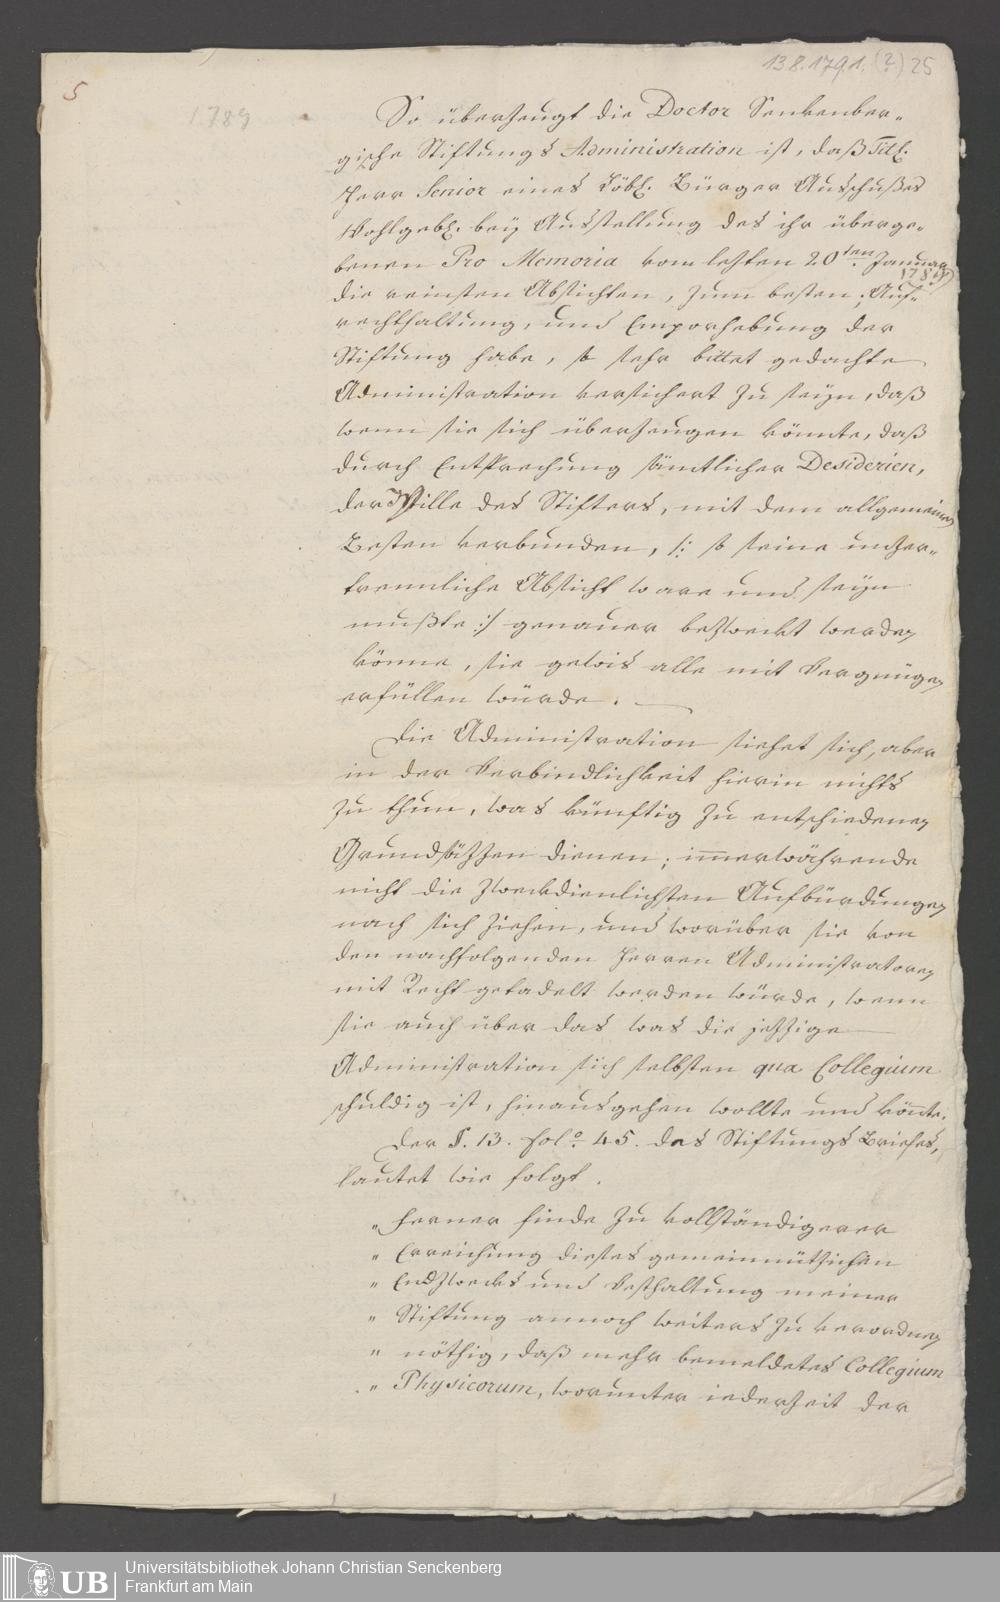 13.8.1791.(?) 25
5
1789
So überzeugt die Doctor Senkenber-
gische Stiftungs Administration ist, daß Titl.
Herr Senior eines Löbl. Bürger Ausschußes
Wohlgebl. bey Ausstellung des ihr überge-
benen Pro Memoria vom letzten 20ten Januar
1789
die reinsten Absichten, zum besten, Auf-
rechthaltung, und Emporhebung der
Stiftung habe, so sehr bittet gedachte
Administration versichert zu seyn, daß
wenn sie sich überzeugen könnte, daß
durch Entsprechung sämtlicher Desiderien,
der Wille des Stifters, mit dem allgemeinen
Besten verbunden, /: so seine unzer-
trennliche Absicht ware und seyn
mußte :/ genauer bezweckt werden
könne, sie gewis alle mit Vergnügen
erfüllen würde.
Die Administration siehet sich, aber
in der Verbindlichkeit hierin nichts
zu thun, was künftig zu entschiedenen
Grundsätzen dienen, immerwährende
nicht die zweckdienlichsten Aufbürdungen
nach sich ziehen, und worüber sie von
den nachfolgenden Herren Administratoren
mit Recht getadelt werden würde, wenn
sie auch über das was die jetzige
Administration sich selbsten qua Collegium
schuldig ist, hinausgehen wollte und könnte.
Der §. 13. fol.o 45. des Stiftungs Briefes,
lautet wie folgt.
„ Ferner finde zu vollständigerer
„ Erreichung dieses gemeinnützichen
„ Endzwecks und Vesthaltung meiner
„ Stiftung annoch weiters zu verordnen
„ nöthig, daß mehr bemeldetes Collegium
„ Physicorum, worunter iederzeit der
UB
Universitätsbibliothek Johann Christian Senckenberg
Frankfurt am Main